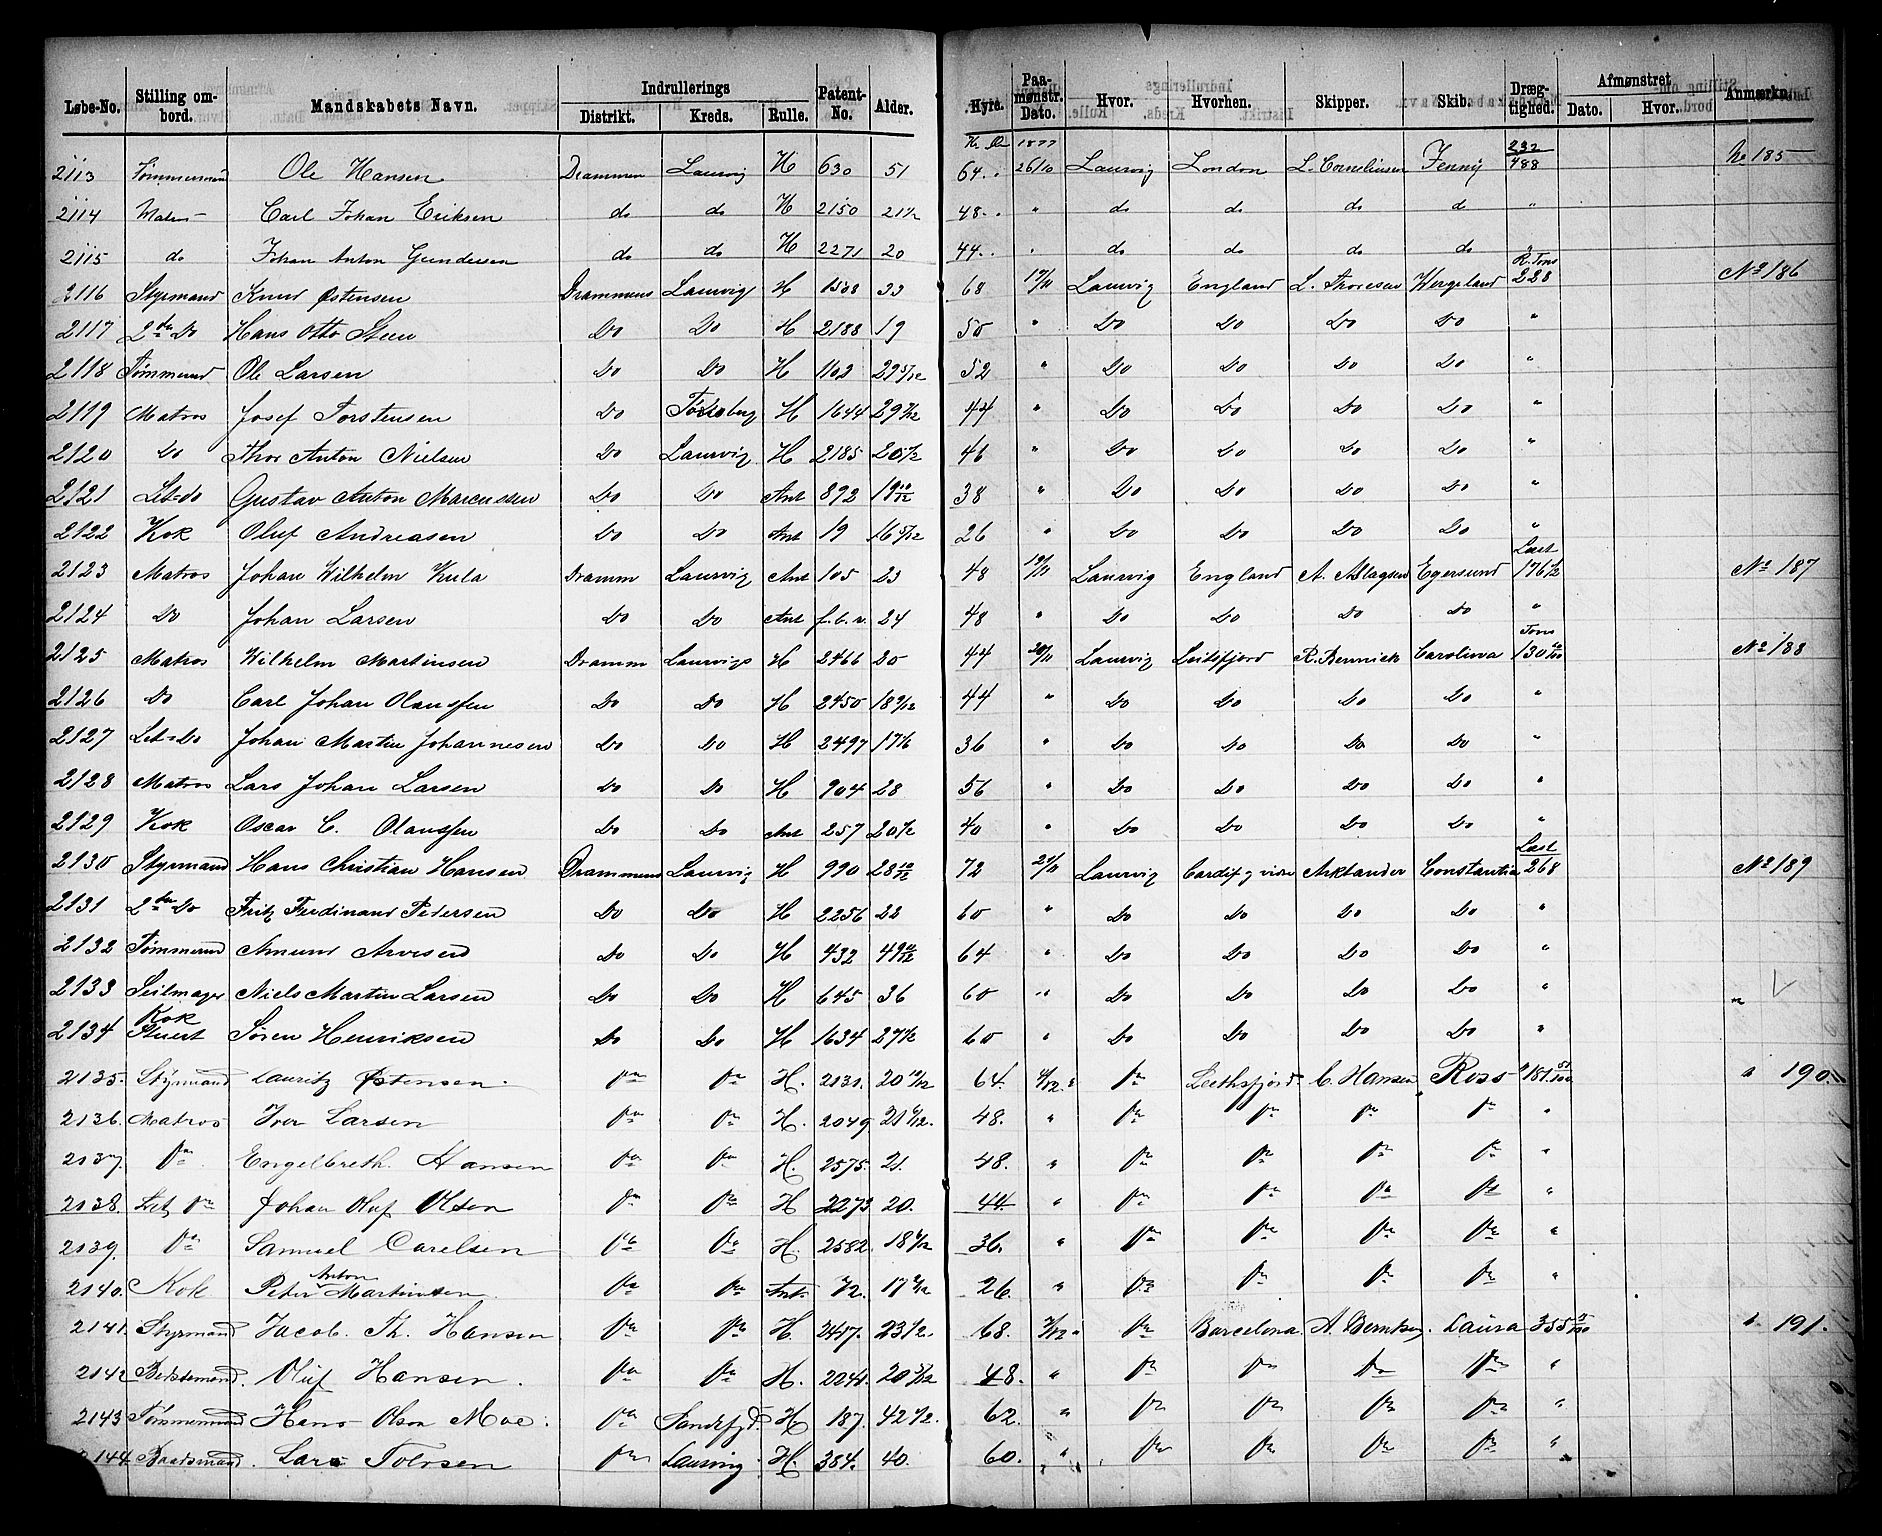 Løbe-No. Stilling ombord. Mandskabets Navn. Indrullerings Distrikt. Kreds. Rulle. Patent-No. Alder. Hyre. Paamønstr. Dato. Hvor. Hvorhen. Skipper. Skib. Drægtighed. Afmønstret Dato. Hvor. Anmærkn.
Kr. Ør 1877
2113 Tømmermand Ole Hansen Drammen Laurvig H 630 51 64 26/10 Laurvig London L. Corneliusen Jenny 232/488 No 185
2114 Matros Carl Johan Eriksen do do H 2150 21 1/2 48 " do do do d "
2115 do Johan Anton Gundersen do do H 2271 20 44 " do do do do "
2116 Styrmand Knud Østensen Drammens Laurvig H 1508 33 68 17/11 Laurvig England L. Thoresen Wergeland R. Tons 228 No 186
2117 2den Do Hans Otto Steen Do Do H 2188 19 50 " Do Do Do Do "
2118 Tømmermd Ole Larsen Do Do H 1102 29 5/12 52 " Do Do Do Do "
2119 Matros Josef Torstensen Do Tønsberg H 1644 29 7/12 44 " Do Do Do Do "
2120 Do Thor Anton Nielsen Do Laurvig H 2185 20 1/2 46 " Do Do Do Do "
2121 Let-do Gustav Anton Marcussen Do Do Ant 892 19 10/12 38 " Do Do Do Do "
2122 Kok Oluf Andreasen Do Do Ant 19 16 5/12 26 " Do Do Do Do "
2123 Matros Johan Wilhelm Kula Dramm Laurvig Ant 105 23 48 19/11 Laurvig England A. Aslagsen Egersund Læst 176 1/2 No 187
2124 Do Johan Larsen Do Do Ant f. b. v. 24 48 " Do Do Do Do "
2125 Matros Wilhelm Martinsen Dramm Laurvigs H 2466 20 44 20/11 Laurvig Leithfjord R. Bernick Carolina Tons 130 No 188
2126 Do Carl Johan Olaussen Do Do H 2450 18 9/12 44 " Do Do Do Do "
2127 Let-Do Johan Martin Johannesen Do Do H 2497 17 1/6 36 " Do Do Do Do "
2128 Matros Lars Johan Larsen Do Do H 904 28 56 " Do Do Do Do "
2129 Kok Oscar C. Olaussen Do Do Ant 257 20 1/2 40 " Do Do Do Do "
2130 Styrmand Hans Christian Hansen Drammens Laurvig H 990 28 10/12 72 21/11 Laurvig Cardif og vidre Arklander Constantia Læst 268 No 189
2131 2den Do Fritz Ferdinand Pedersen Do Do H 2256 22 60 " Do Do Do Do "
2132 Tømmermd Amund Arvesen Do Do H 432 49 10/12 64 " Do Do Do Do "
2133 Seilmager Niels Martin Larsen Do Do H 645 36 60 " Do Do Do Do "
2134 Kok Stuert Søren Henriksen Do Do H 1634 27 1/2 60 " Do Do Do Do "
2135. Styrmand Lauritz Østensen. do do H. 2131. 20 10/12 64. 4/12 do Leithsfjord C. Hansen Ross 181 51/100 " 190.
2136. Matros Iver Larsen do do H. 2049 21 4/12. 48. " do do do do "
2137. do Engelbreth Hansen do do H. 2575. 21. 48. " do do do do "
2138. Let do Johan Oluf Olsen do do H 2273 20. 44. " do do do do "
2139. do Samuel Carelsen do do H. 2582. 18 6/12 36. " do do do do "
2140. Kok Peter Anton Martinsen. do do Ant. 72. 17 2/12 26. " do do do do "
2141. Styrmand Jacob Th. Hansen do do H 2457. 23 1/2. 68. 7/12 do Barcelona. A. Berntsen. Laura 355 " 191.
2142 Oluf Hansen. do do H. 2241. 20 5/12 48. " do do do do "
2143 Tømmermand Hans Olsen Moe. do Sandefjd. H 187. 42 1/2. 62. " do do do do "
2144 Baadsmand. Lars Tolvsen do Laurvig. H. 384. 40. 60. " do do do do "